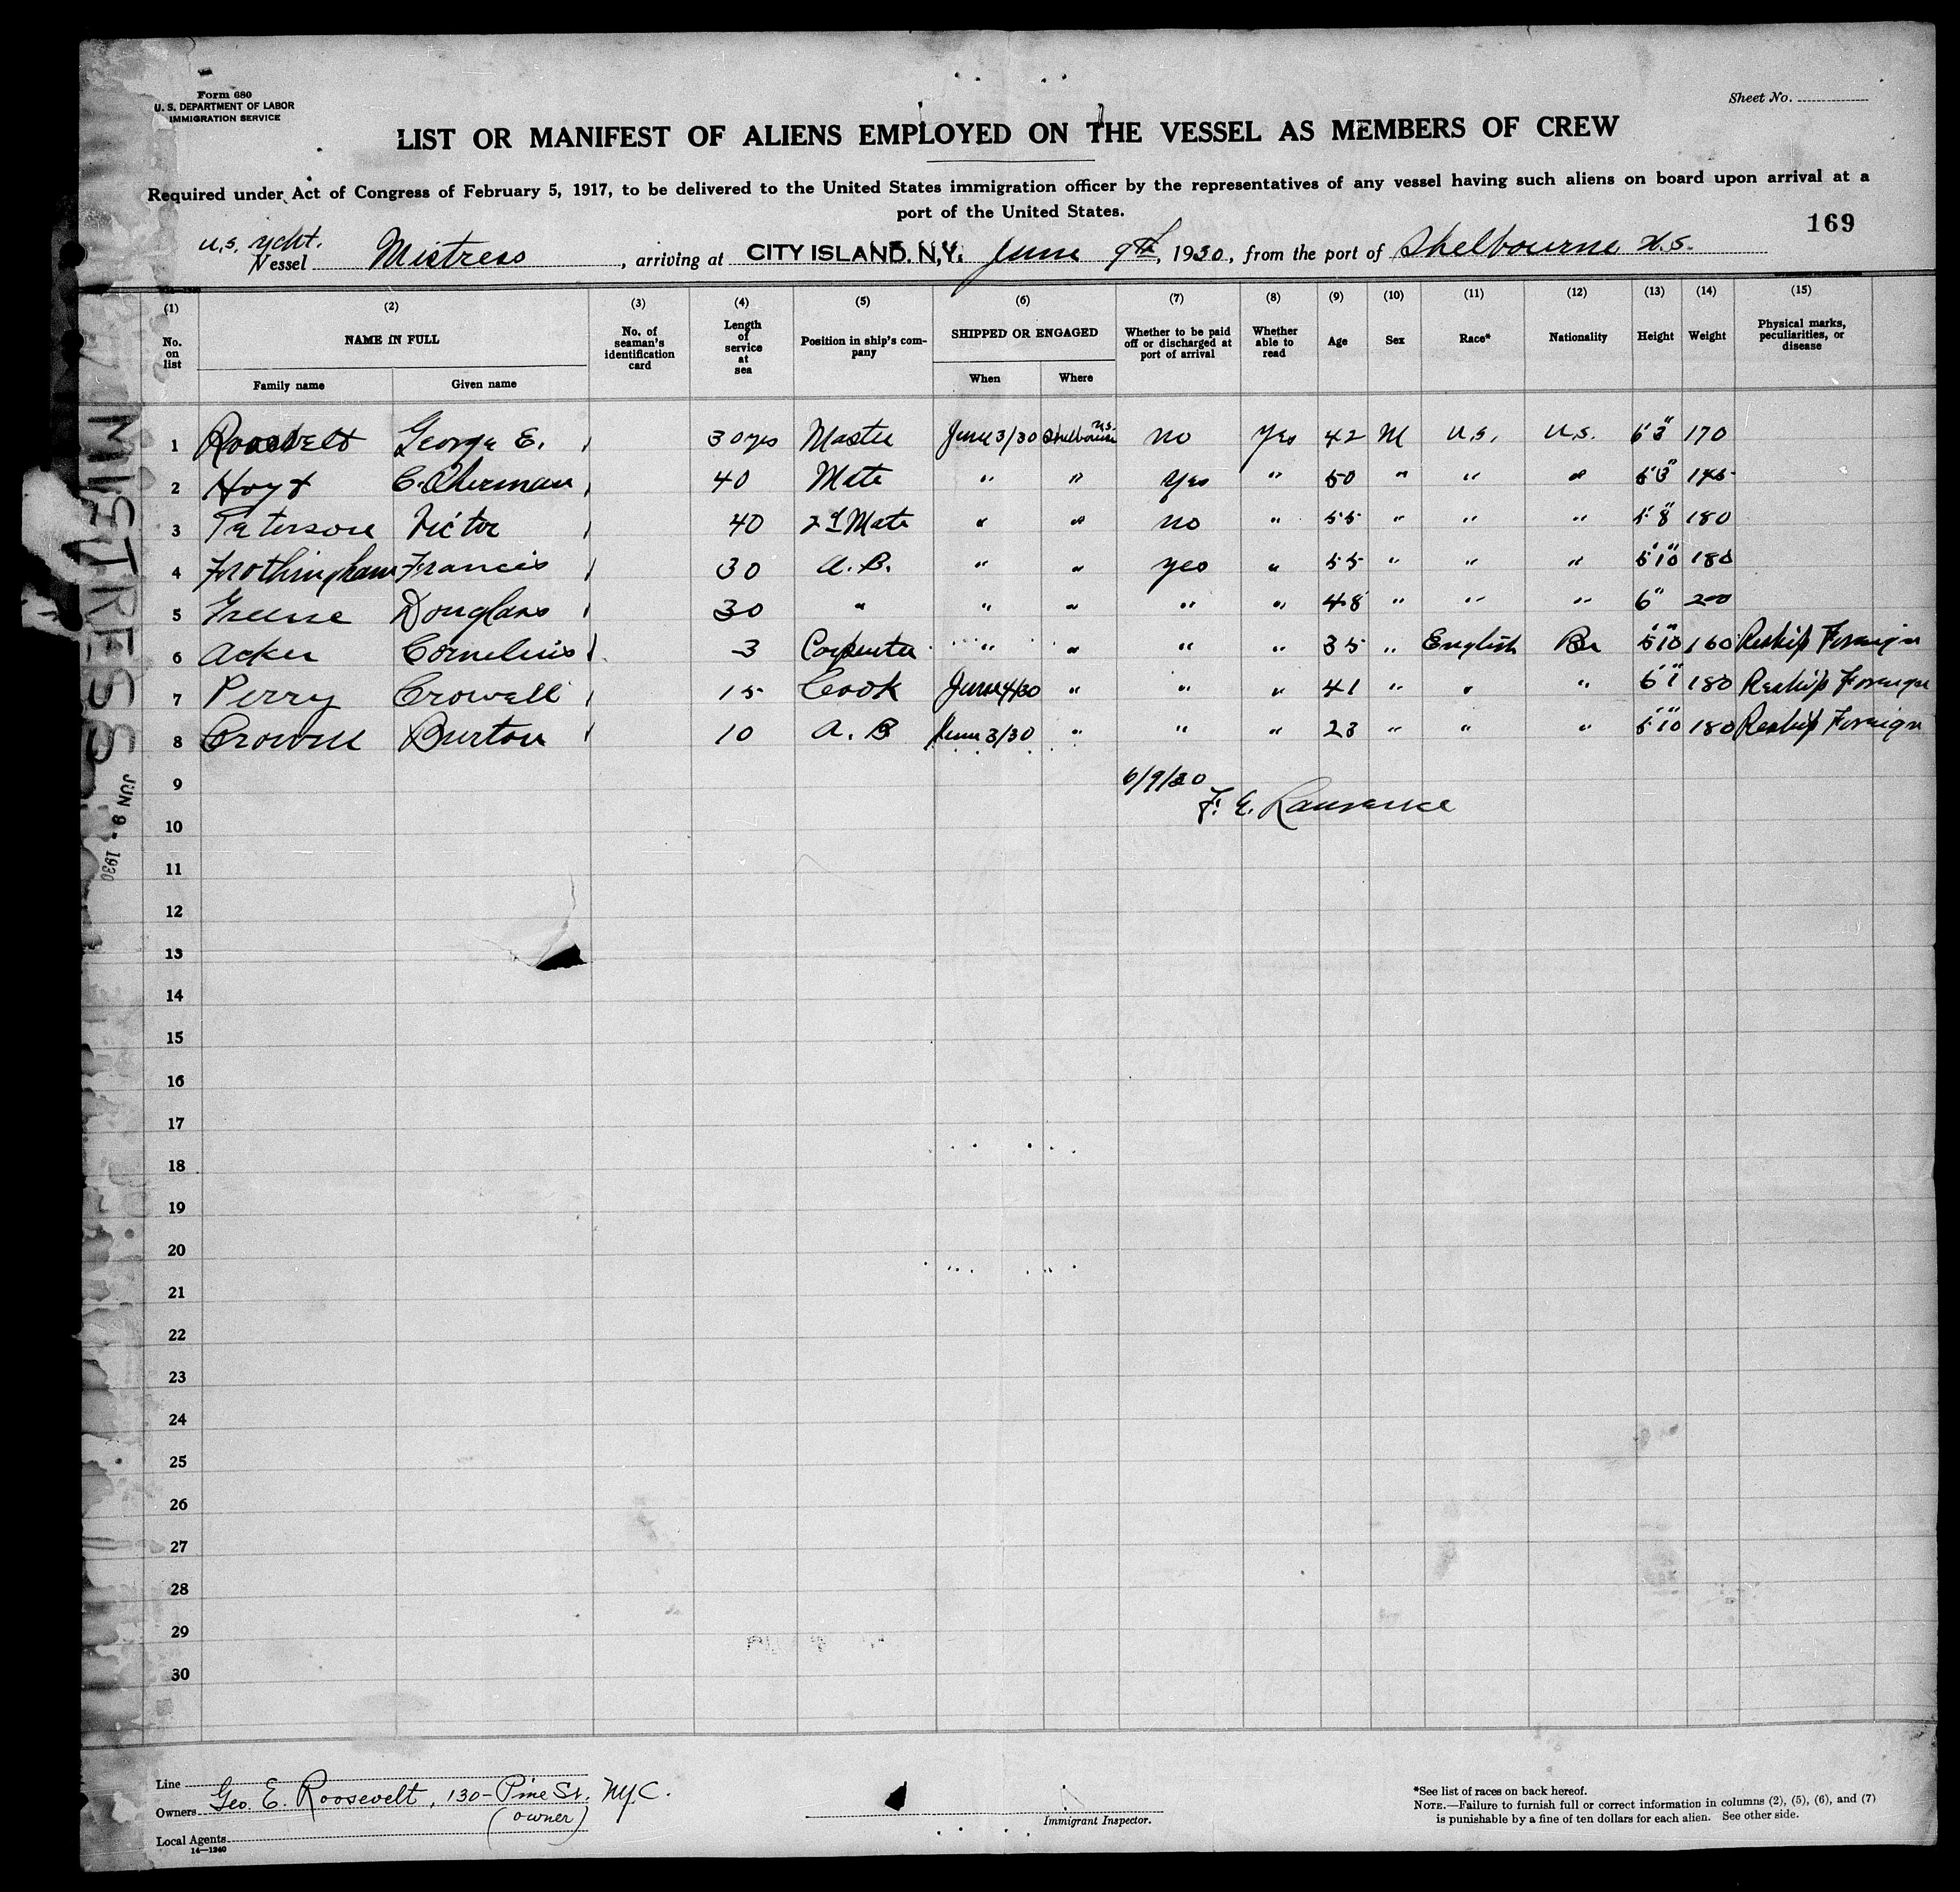 Form 680
U. S. DEPARTMENT OF LABOR
IMMIGRATION SERVICE
Sheet No.
LIST OR MANIFEST OF ALIENS EMPLOYED ON THE VESSEL AS MEMBERS OF CREW
Required under Act of Congress of February 5, 1917, to be delivered to the United States immigration officer by the representatives of any vessel having such aliens on board upon arrival at a
port of the United States.
169
U.S. ycht.
Vessel Mistress, arriving at CITY ISLAND. N.Y. June 9th, 1930, from the port of Shelbourne N.S.
(1) (2) (3) (4) (5) (6) (7) (8) (9) (10) (11) (12) (13) (14) (15)
No. on list NAME IN FULL No. of seaman's identification card Length of service at sea Position in ship's company SHIPPED OR ENGAGED Whether to be paid off or discharged at port of arrival Whether able to read Age Sex Race* Nationality Height Weight Physical marks, peculiarities, or disease
Family name Given name When Where
1 Roosevelt George E. 30 yrs Master June 3/30 Shelbourne N.S. no Yes 42 M U.S. U.S. 6'3" 170
2 Hoyt C. Sherman 40 Mate " " Yes " 50 " " " 5'3" 145
3 Peterson Victor 40 2d Mate " " no " 55 " " " 5'8" 180
4 Frothingham Francis 30 A.B. " " yes " 55 " " " 5'10" 180
5 Greene Douglass 30 " " " " " 48 " " " 6" 200
6 Acker Cornelius 3 Carpenter " " " " 35 " English Br 5'10" 160 Reship Foreign
7 Perry Crowell 15 Cook June 4/30 " " " 41 " " " 6'1" 180 Reship Foreign
8 Crowell Burton 10 A. B June 3/30 " " " 23 " " " 5'10" 180 Reship Foreign
9
6/9/30
F. E. Lawrence
10
11
12
13
14
15
16
17
18
19
20
21
22
23
24
25
26
27
28
29
30
MISTRESS
JUN 9 - 1930
Line
Owners Geo. E. Roosevelt, 130 - Pine St. N.Y.C.
(owner)
Local Agents
14—1240
Immigrant Inspector.
*See list of races on back hereof.
NOTE.—Failure to furnish full or correct information in columns (2), (5), (6), and (7)
is punishable by a fine of ten dollars for each alien. See other side.